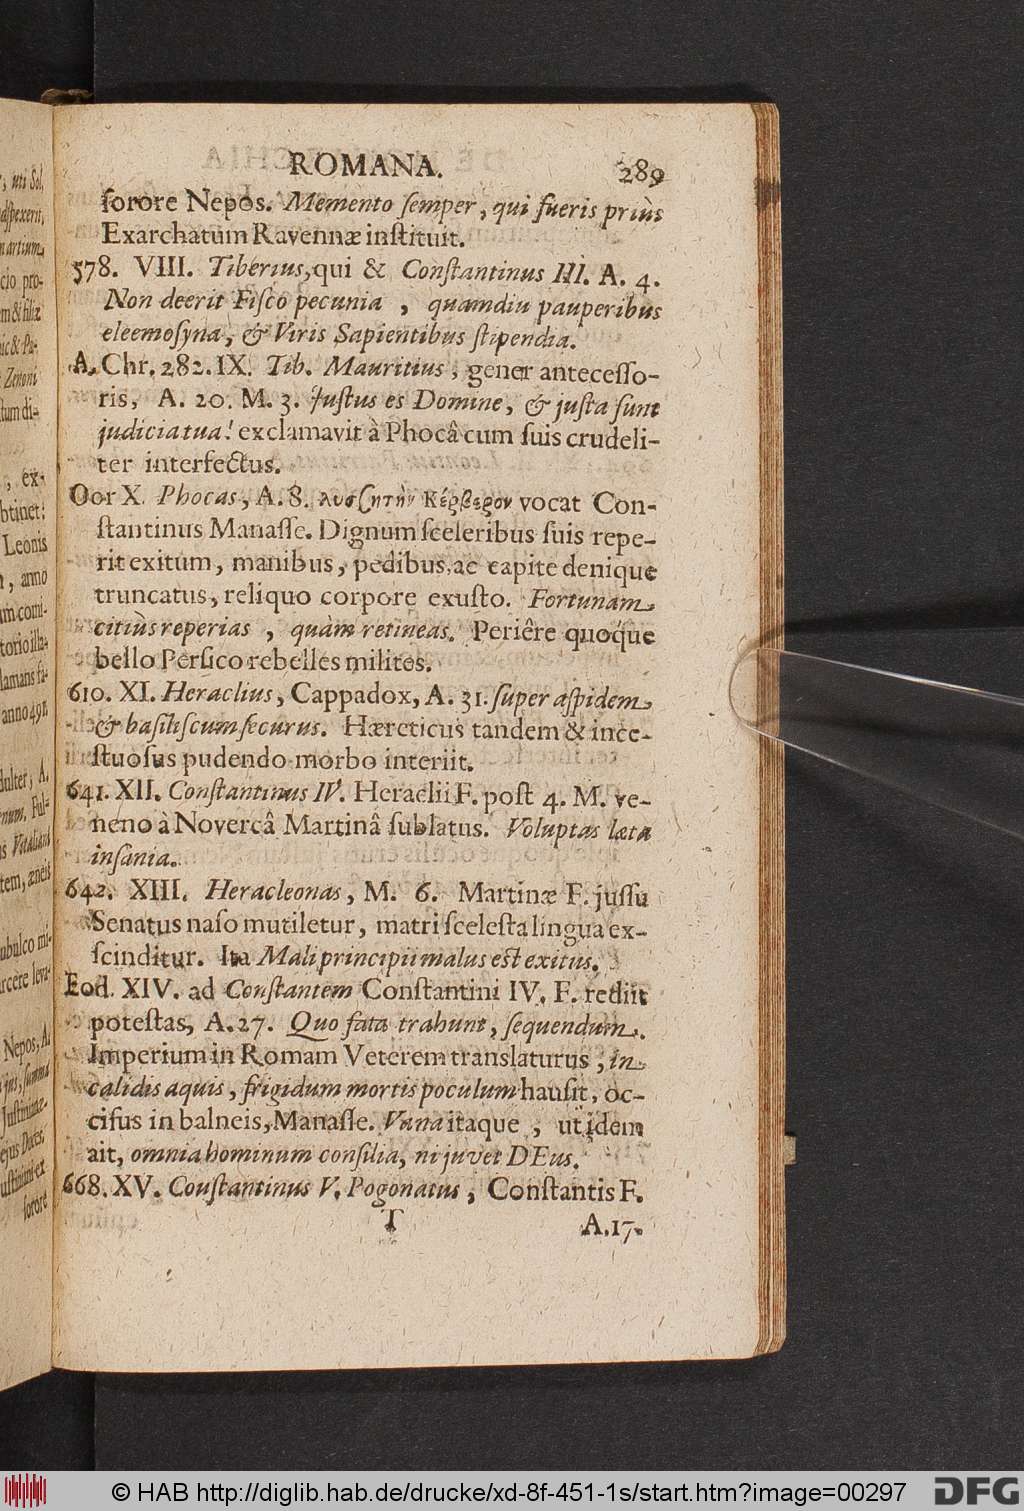 ROMANA. 289
ſorore Nepos. Memento ſemper, qui fueris priùs
Exarchatum Ravennæ inſtituit.
578. VIII. Tiberius, qui & Conſtantinus III. A. 4.
Non deerit Fiſco pecunia, quamdiu pauperibus
eleemoſyna, & Viris Sapientibus ſtipendia.
A. Chr. 282. IX. Tib. Mauritius, gener anteceſſo-
ris, A. 20. M. 3. Juſtus es Domine, & juſta ſunt
judicia tua! exclamavit à Phocâ cum ſuis crudeli-
ter interfectus.
Oor X. Phocas, A. 8. Κέρβερον vocat Con-
ſtantinus Manaſſe. Dignum ſceleribus ſuis repe-
rit exitum, manibus, pedibus, ac capite denique
truncatus, reliquo corpore exuſto. Fortunam
citiùs reperias, quàm retineas. Periêre quoque
bello Perſico rebelles milites.
610. XI. Heraclius, Cappadox, A. 31. ſuper aſpidem
& baſiliſcum ſecurus. Hæreticus tandem & ince-
ſtuoſus pudendo morbo interiit.
641. XII. Conſtantinus IV. Heraclii F. poſt 4. M. ve-
neno à Novercâ Martinâ ſublatus. Voluptas læta
inſania.
642. XIII. Heracleonas, M. 6. Martinæ F. juſſu
Senatus naſo mutiletur, matri ſceleſta lingua ex-
ſcinditur. Ita Mali principii malus est exitus.
Eod. XIV. ad Conſtantem Conſtantini IV. F. rediit
poteſtas, A. 27. Quo fata trahunt, ſequendum.
Imperium in Romam Veterem translaturus, in
calidis aquis, frigidum mortis poculum hauſit, oc-
ciſus in balneis, Manaſſe. Vana itaque, ut idem
ait, omnia hominum conſilia, ni juvet DEus.
668. XV. Couſtantinus V. Pogonatus, Conſtantis F.
T A. 17.
, uti Sol,
cio pro-
, ex-
btinet:
Leonis
, anno
anno 491.
dulter, A.
Nepos, A.
ſorore
© HAB http://diglib.hab.de/drucke/xd-8f-451-1s/start.htm?image=00297 DFG